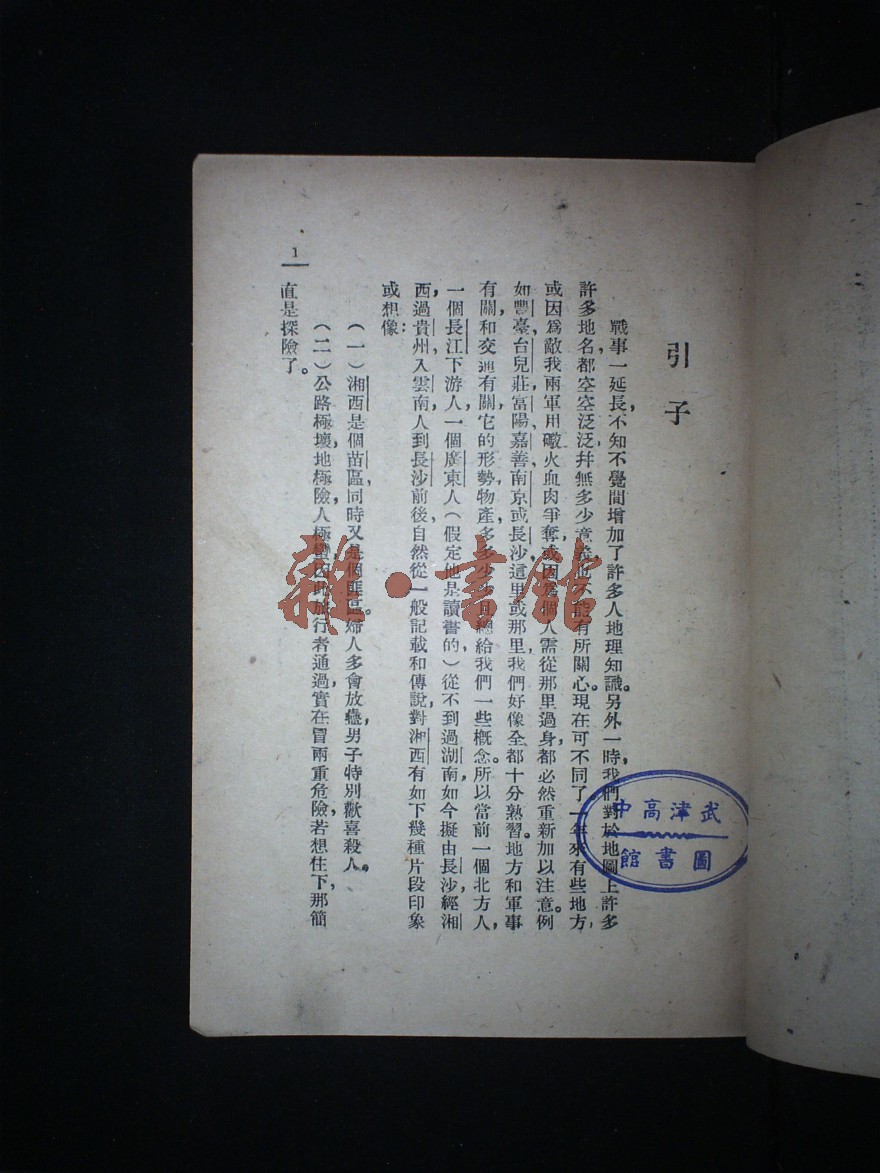 引子
戰事一延長，不知不覺間增加了許多人地理知識。另外一時，我們對於地圖上許多
許多地名，都空空泛泛，幷無多少意義，也不能有所關心。現在可不同了，一年來有些地方，
或因爲敵我兩軍用礮火血肉爭奪，或因爲個人需從那里過身，都必然重新加以注意。例
如豐臺，台兒莊，富陽，嘉善，南京或長沙，這里或那里，我們好像全都十分熟習。地方和軍事
有關，和交通有關，它的形勢，物產，多多少少且總給我們一些槪念。所以當前一個北方人，
一個長江下游人，一個廣東人（假定他是讀書的），從不到過湖南，如今擬由長沙，經湘
西，過貴州，入雲南，人到長沙前後，自然從一般記載和傳說，對湘西有如下幾種片段印象
或想像：
（一）湘西是個苗區，同時又是個匪區。婦人多會放蠱，男子特別歡喜殺人。
（二）公路極壞，地極險，人極蠻，因此旅行者通過，實在冒兩重危險，若想住下，那簡
直是探險了。
1
武津高中
圖書館
雜·書館